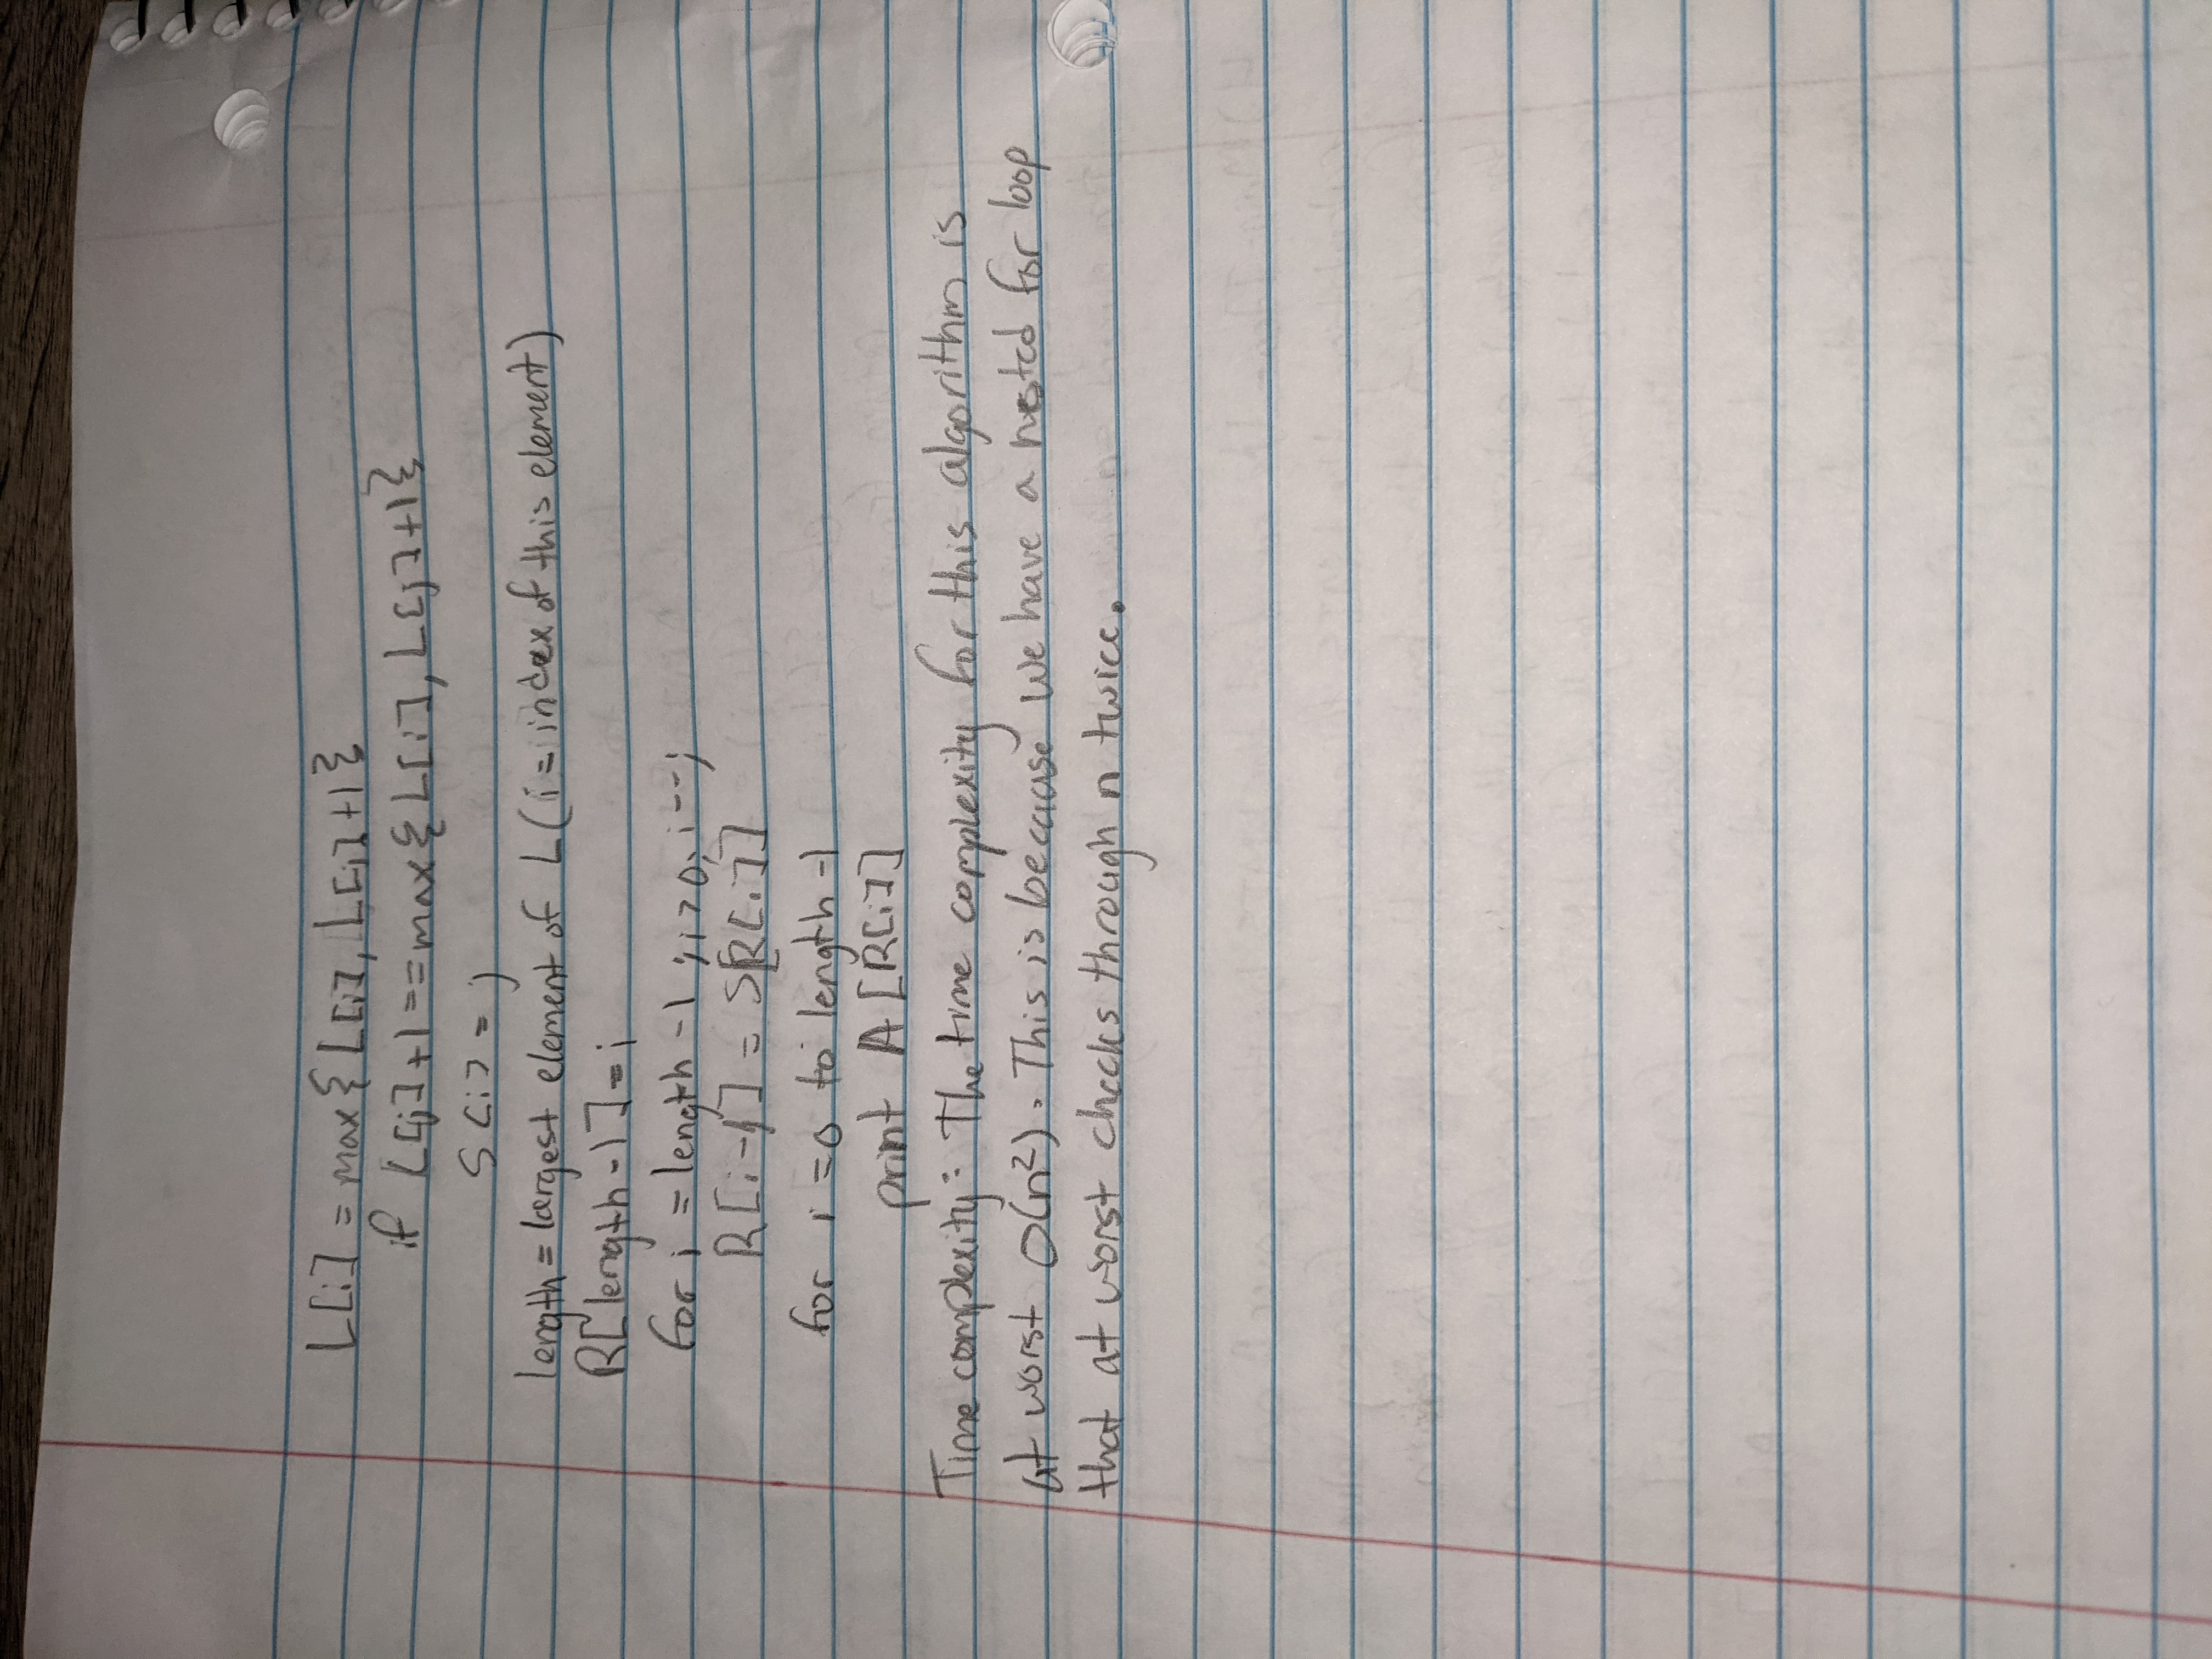 L[i] = max{L[i], L[j]+1}
if L[j]+1==max{L[i], L[j]+1}
S[i] = j
length = largest element of L (i = index of this element)
R[length-1] = i
for i = length -1 ; i>0; i--;
R[i-1] = S[R[i]]
for i =0 to length -1
print A [R[i]]
Time complexity: The time complexity for this algorithm is
at worst O(n²). This is because we have a nested for loop
that at worst checks through n twice.